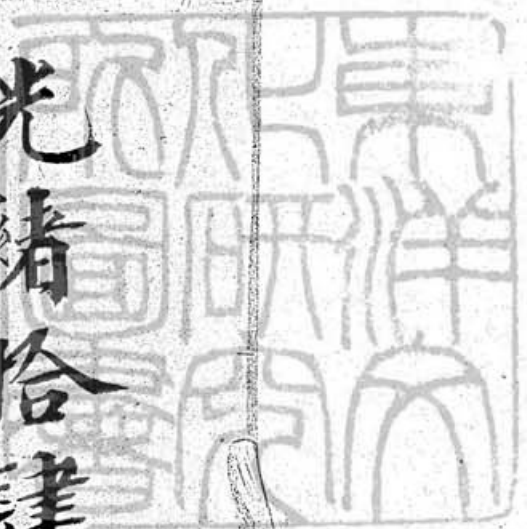 東洋文
化研究
所圖書
光緒拾肆